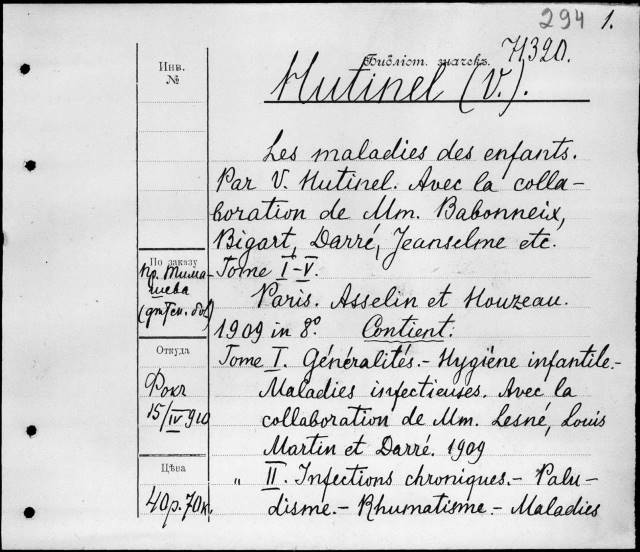 294 1.
Инв.
№
Библіот. значекъ.
71320.
Hutinel (V.).
Les maladies des enfants.
Par V. Hutinel. Avec la colla-
boration de Mm. Babonneix,
Bigart, Darré, Jeanselme etc.
Tome I-V.
Paris. Asselin et Houzeau.
1909 in 8º. Contient:
Tome I. Généralités.- Hygiène infantile.-
Maladies infectieuses. Avec la
collaboration de Mm. Lesné, Louis
Martin et Darré. 1909
„ II. Infections chroniques.- Palu-
disme.- Rhumatisme.- Maladies
По заказу
пр. Тима-
шева
Откуда
Фокъ
15/IV 910
Цѣна
40р.70к.